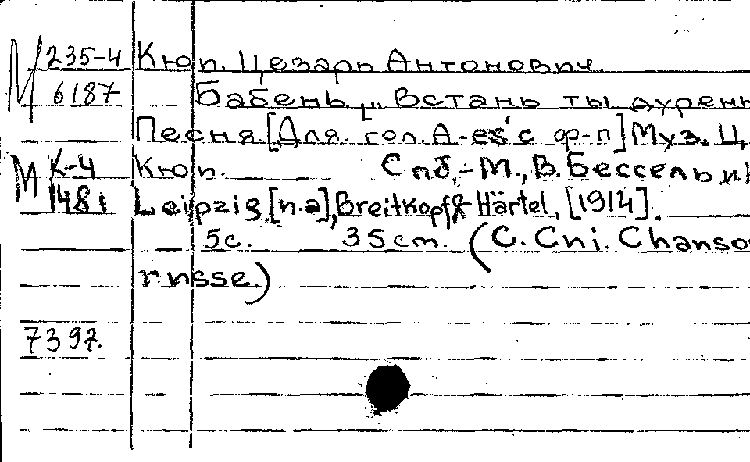 М 235-4 Кюи. Цезарь Антонович
6187 Бабень[ „Встань ты дурень
Песня. [Для гол. A-es² с ф-п] Муз. Ц.
М К-4 Кюи. Спб.-М., В. Бессель и К
148i Leipzig [п.а], Breitkopf & Härtel, [1914].
5с. 35 cm. (C. Cui. Chanso
russe.)
7397.